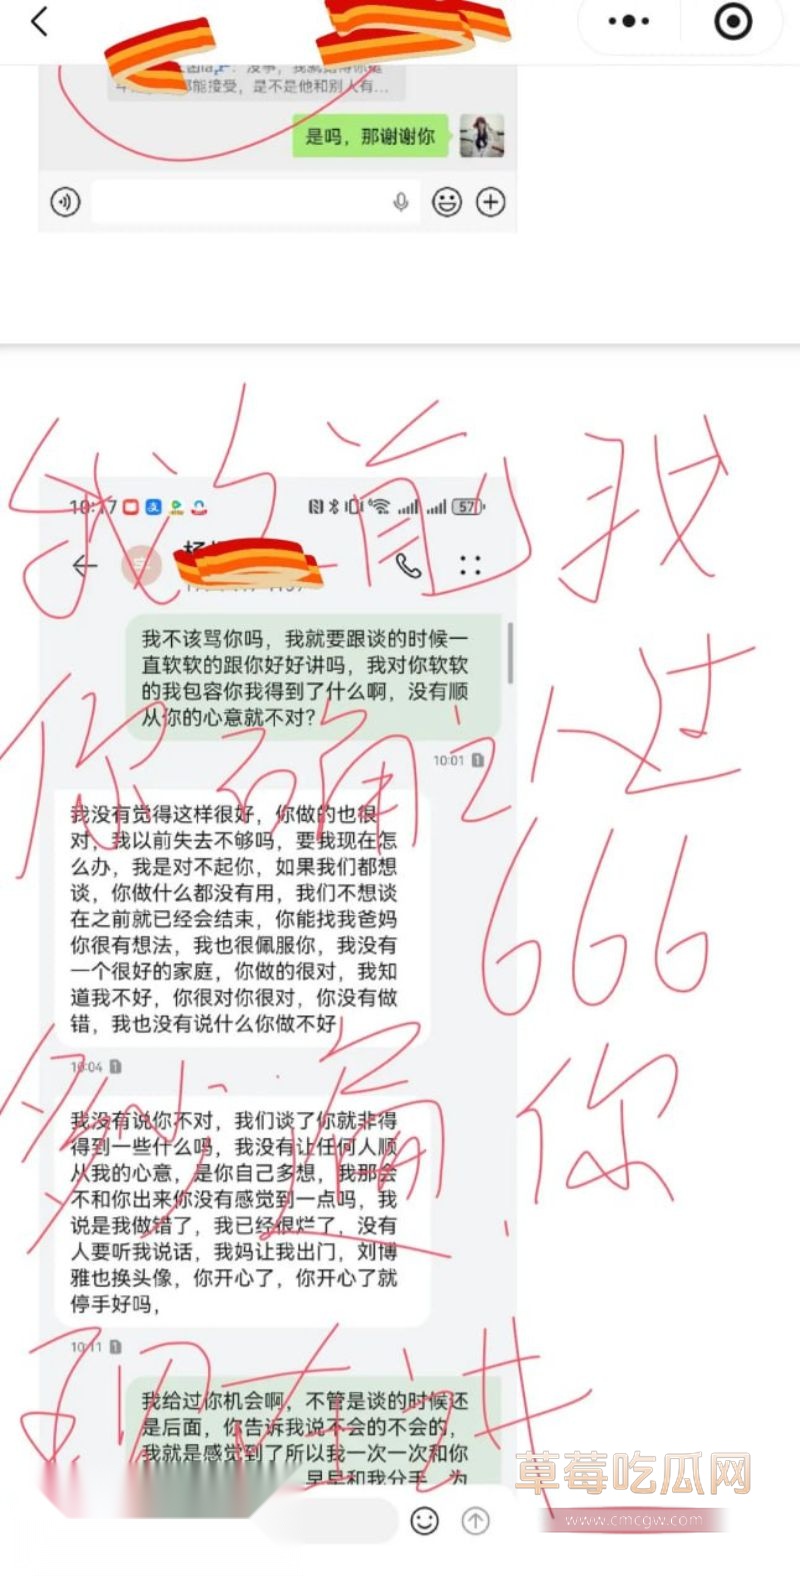 没事，我就觉得你挺
都能接受，是不是他和别人有...
是吗，那谢谢你
我之前
我
10:17
57
杨
我不该骂你吗，我就要跟谈的时候一
直软软的跟你好好讲吗，我对你软软
的我包容你我得到了什么啊，没有顺
从你的心意就不对？
10:01
你确认过
我没有觉得这样很好，你做的也很
对，我以前失去不够吗，要我现在怎
么办，我是对不起你，如果我们都想
谈，你做什么都没有用，我们不想谈
在之前就已经会结束，你能找我爸妈
你很有想法，我也很佩服你，我没有
一个很好的家庭，你做的很对，我知
道我不好，你很对你很对，你没有做
错，我也没有说什么你做不好
666
10:04
多少遍
你
我没有说你不对，我们谈了你就非得
得到一些什么吗，我没有让任何人顺
从我的心意，是你自己多想，我那会
不和你出来你没有感觉到一点吗，我
说是我做错了，我已经很烂了，没有
人要听我说话，我妈让我出门，刘博
雅也换头像，你开心了，你开心了就
停手好吗，
10:11
现在讲
我给过你机会啊，不管是谈的时候还
是后面，你告诉我说不会的不会的，
我就是感觉到了所以我一次一次和你
早早和我分手，为
草莓吃瓜网
www.cmcgw.com